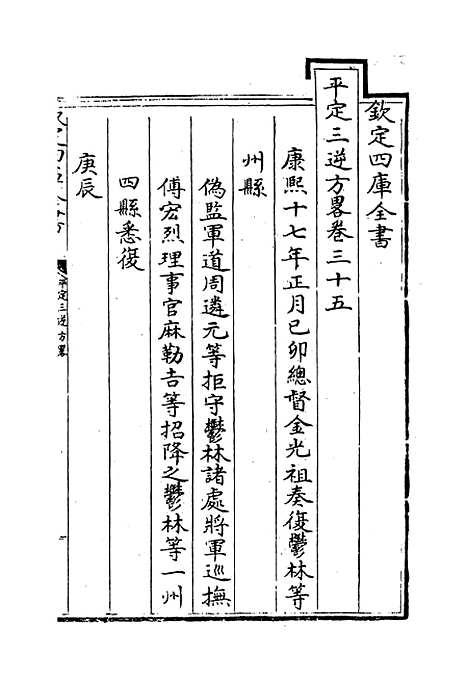 欽定四庫全書
平定三逆方畧卷三十五
康熙十七年正月己卯總督金光祖奏復鬱林等
州縣
偽監軍道周遴元等拒守鬱林諸處將軍巡撫
傅宏烈理事官麻勒吉等招降之鬱林等一州
四縣悉復
庚辰
平定三逆方畧